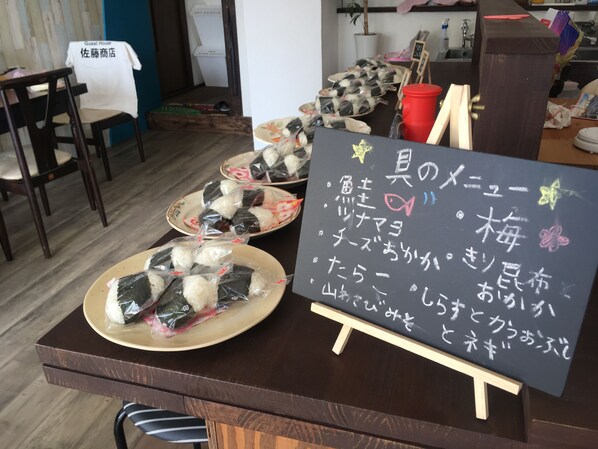 Guest House
佐藤商店
具のメニュー
・鮭
ツナマヨ
・チーズおかか
・たらこ
・山わさびみそ
・梅
・きり昆布と
おかか
・しらすとカラおぶし
とネギ